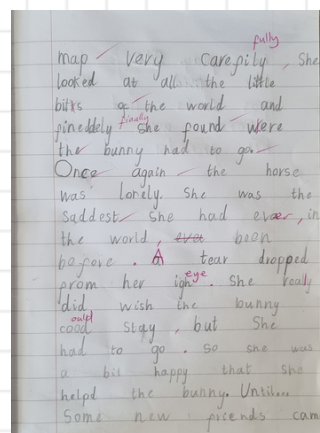 fully
map very carefily, She
looked at all the little
bitts of the world and
finally
pineddely she pound were
the bunny had to go.
Once again the horse
was lonely. She was the
saddest she had ever, in
the world, eva been
before. A tear dropped
eye
prom her igh. She really
did wish the bunny
could
cood stay, but She
had to go. So she was
a bit happy that she
helpd the bunny. Until...
Some new priends cam